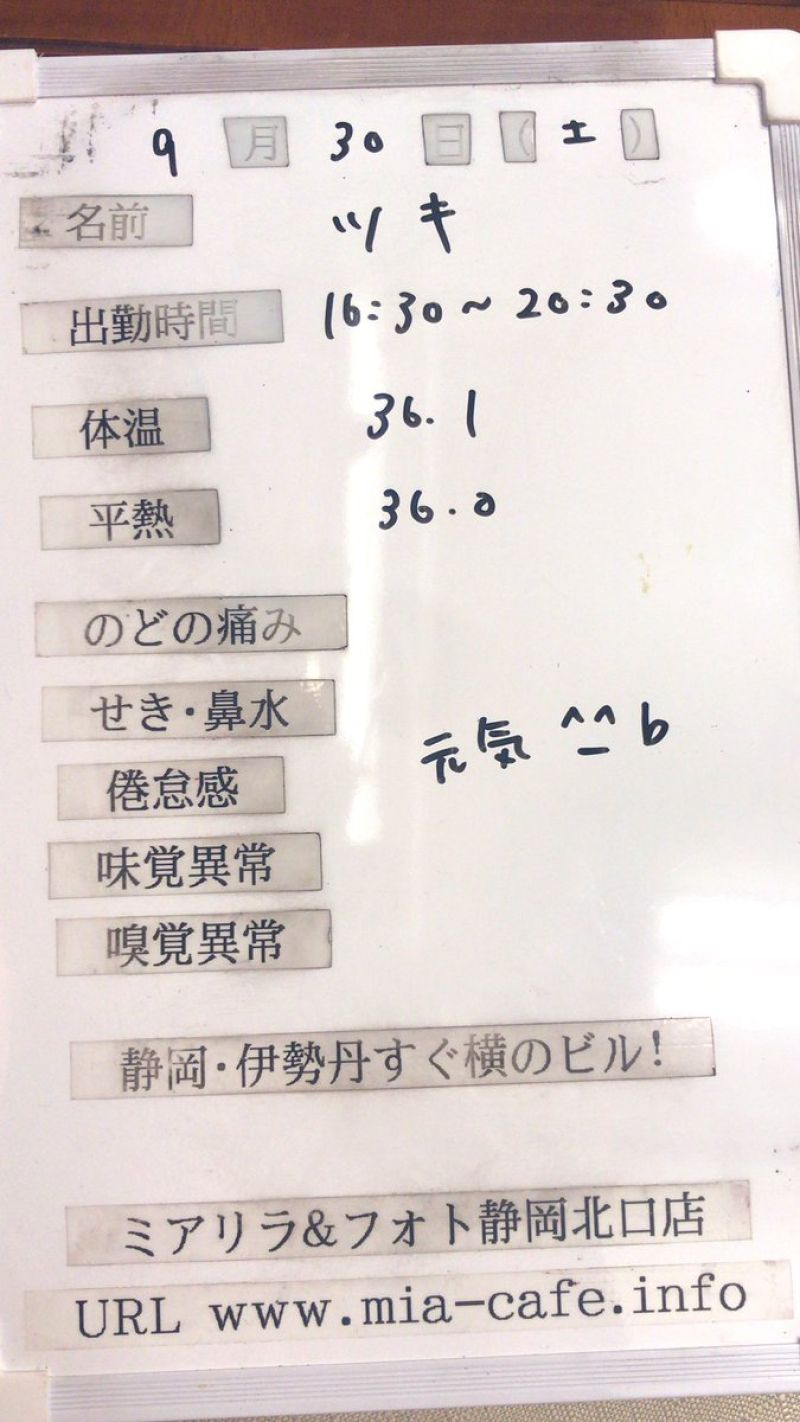 9月30日(土)
名前 ツキ
出勤時間 16:30~20:30
体温 36.1
平熱 36.0
のどの痛み
せき・鼻水
元気 ^_^b
倦怠感
味覚異常
嗅覚異常
静岡・伊勢丹すぐ横のビル!
ミアリラ&フォト静岡北口店
URL www.mia-cafe.info